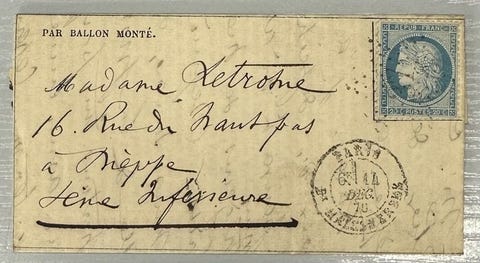 PAR BALLON MONTÉ.
REPUB. FRANC.
20 C POSTES 20 C
Madame Letrosne
16. Rue du Haut pas
à Dieppe
Seine Inférieure
PARIS
DEC.
70